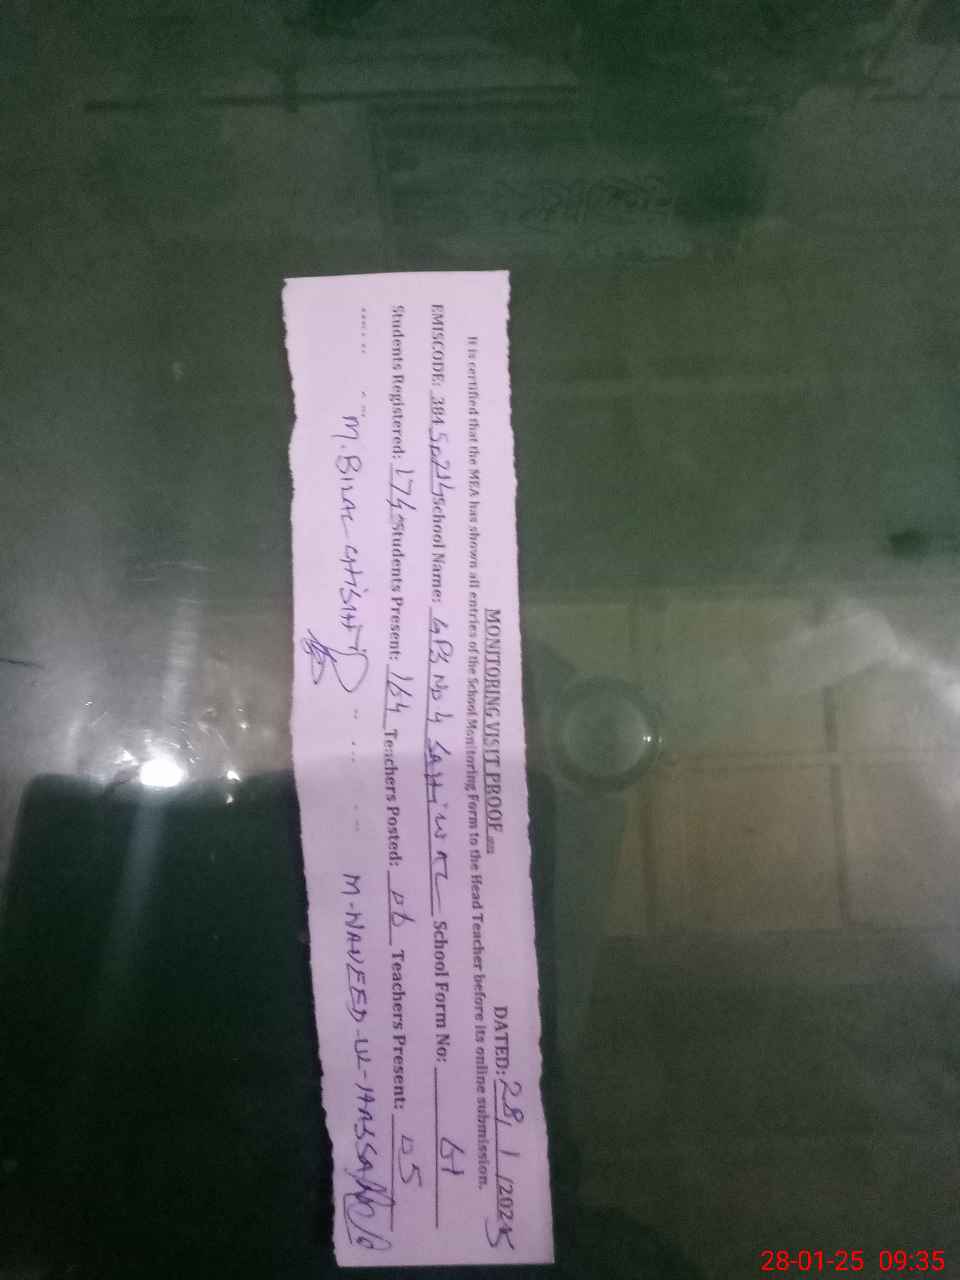 MONITORING VISIT PROOF DATED: 28/1/2025
It is certified that the MEA has shown all entries of the School Monitoring Form to the Head Teacher before its online submission.
EMISCODE: 384 School Name: GPS No 4 SAHiWAL School Form No:
Students Registered: 174 Students Present: 164 Teachers Posted: 06 Teachers Present: 05
M. BILAL M-NAVEED-UL-HASSAN
28-01-25 09:35